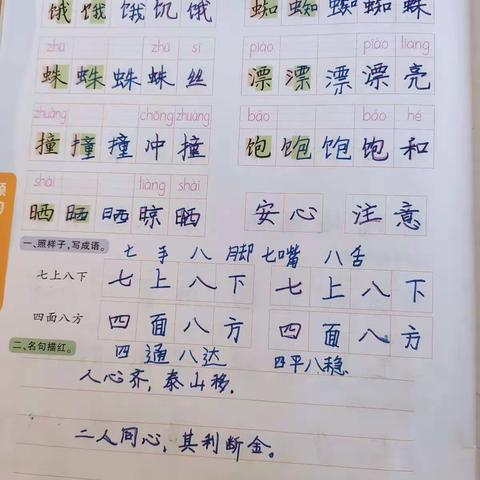 饿 饿 饿 饥 饿 蜘 蜘 蜘 蜘 蛛
zhū zhū sī piào piào liang
蛛 蛛 蛛 蛛 丝 漂 漂 漂 漂 亮
zhuàng chōng zhuàng bǎo bǎo hé
撞 撞 撞 冲 撞 饱 饱 饱 饱 和
shài liàng shài
晒 晒 晒 晾 晒 安 心 注 意
一、照样子,写成语。 七 手 八 脚 七嘴 八 舌
七上八下 七 上 八 下 七 上 八 下
四面八方 四 面 八 方 四 面 八 方
二、名句描红。 四 通 八 达 四平八稳
人心齐,泰山移.
二人同心,其利断金。